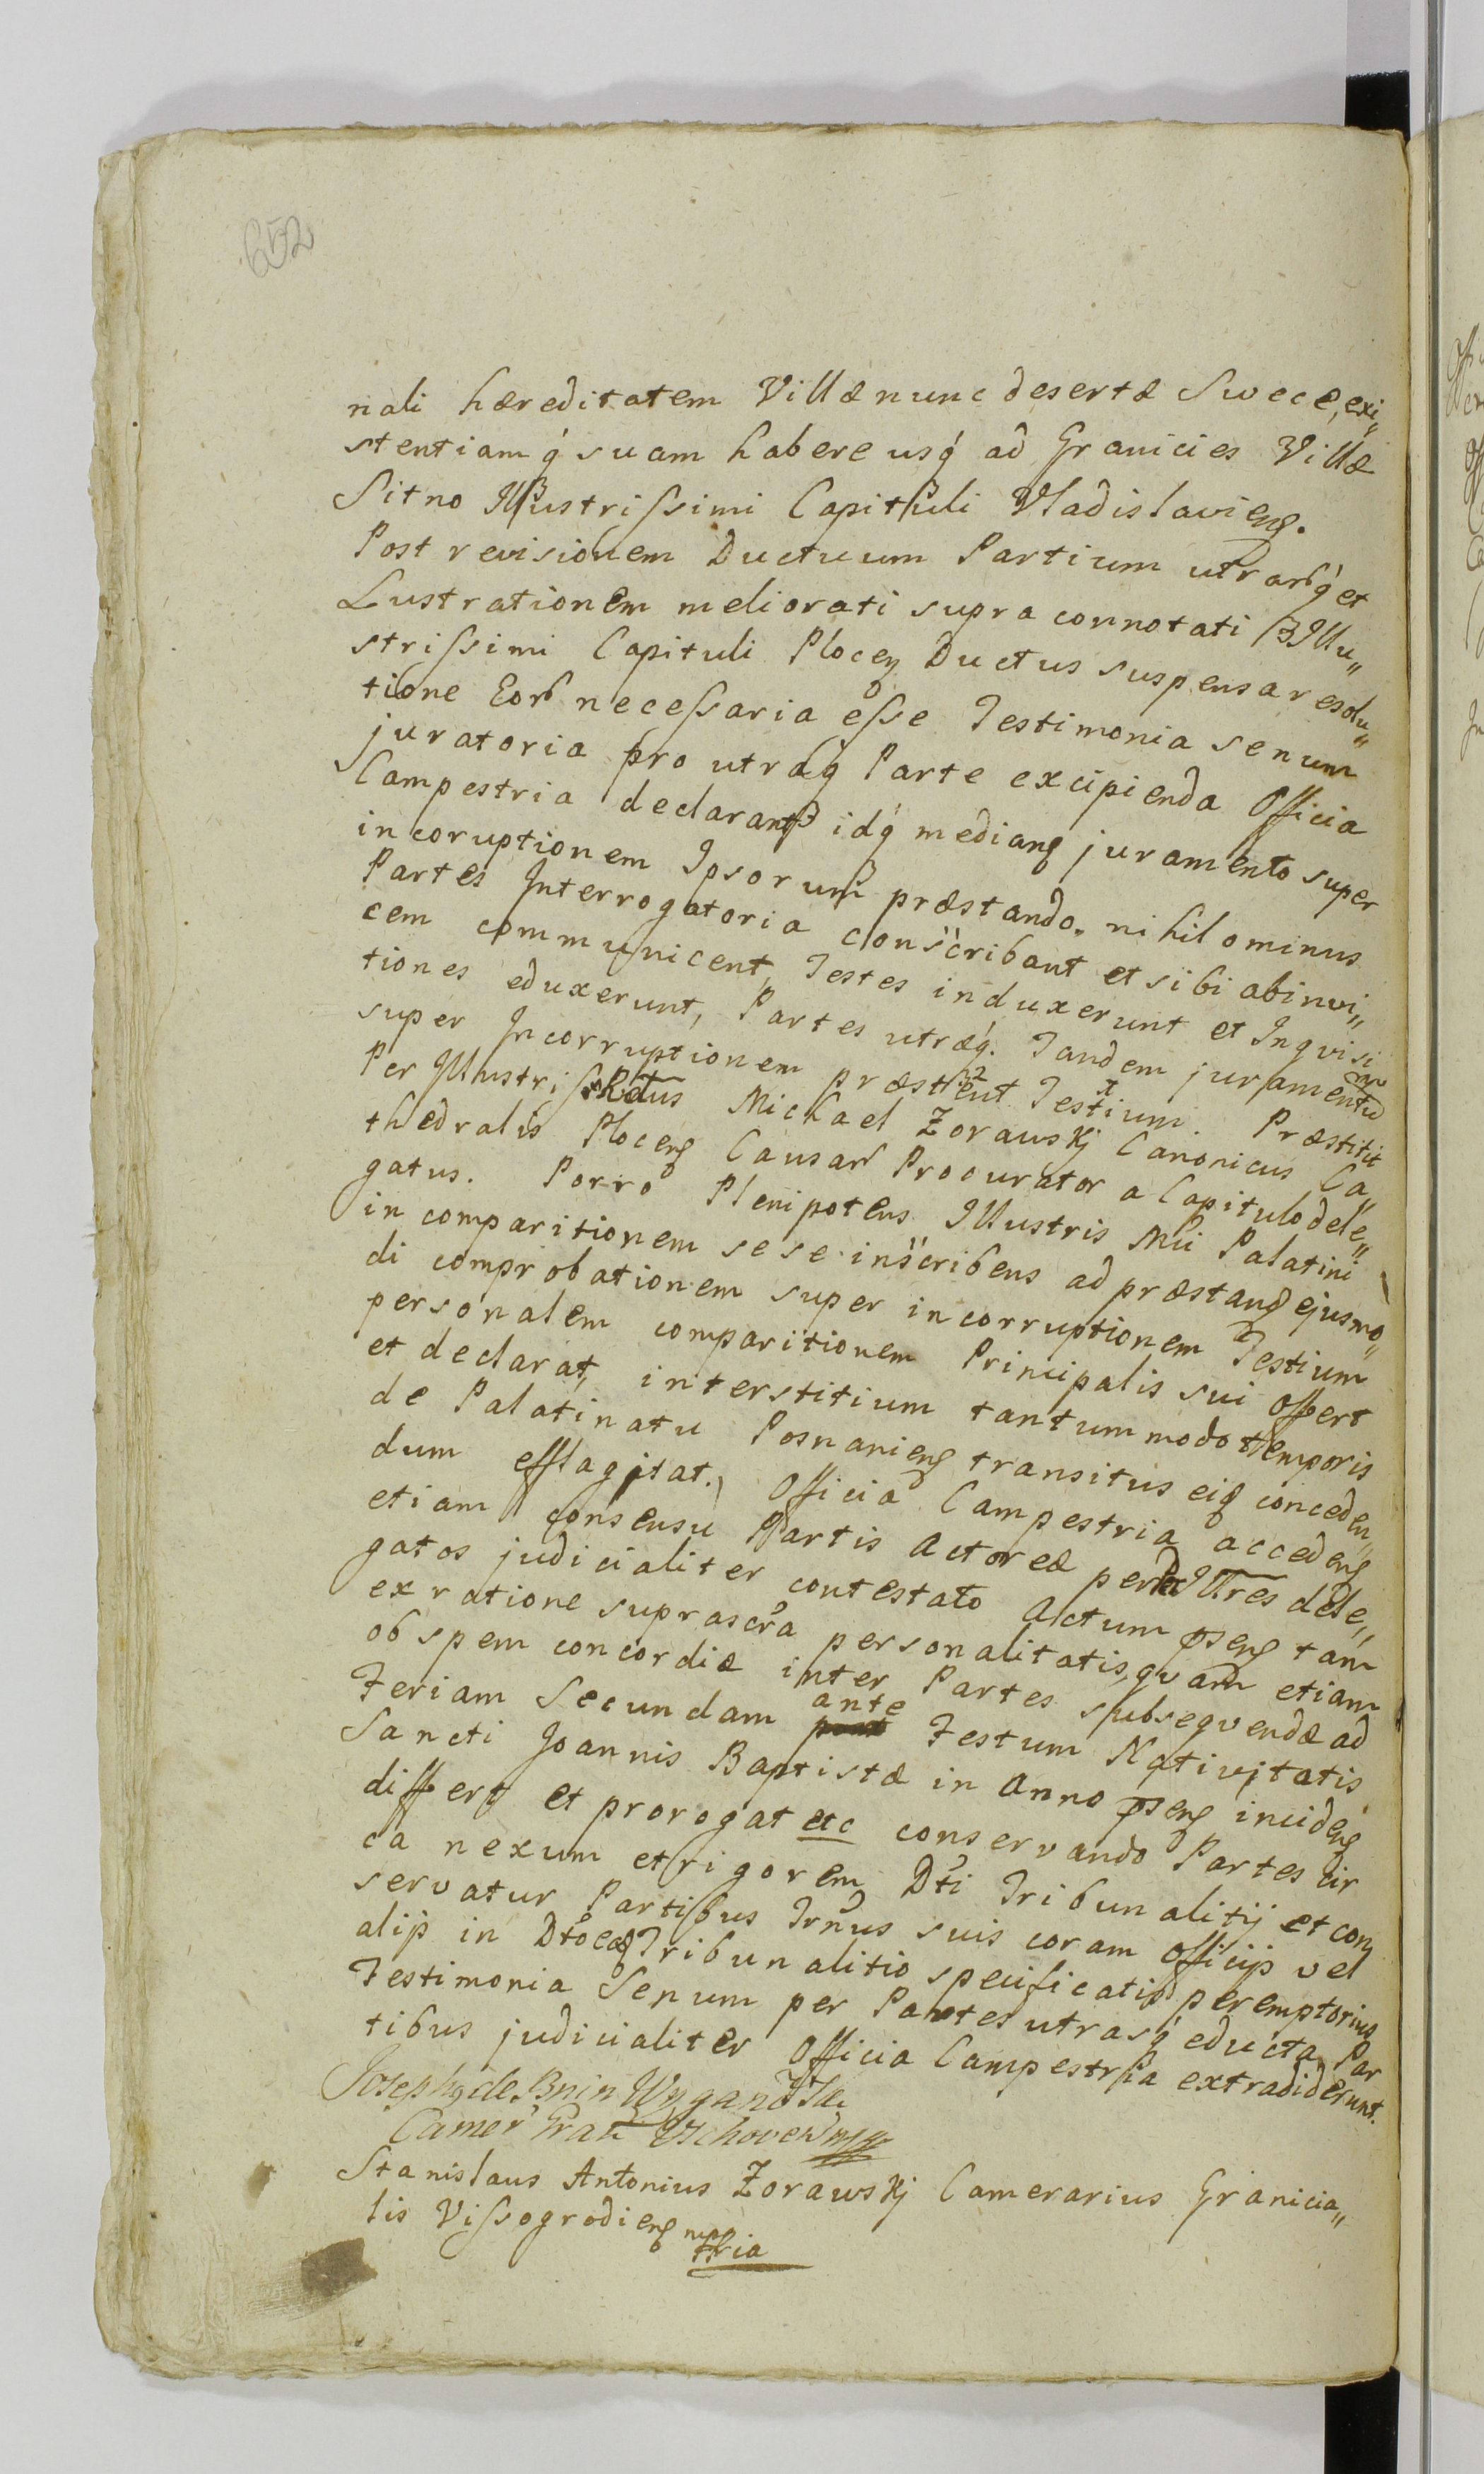 652
nali hæreditatem Villæ nunc desertæ Swece, exi„
stentiamq́ suam habere usq́ ad Granicies Villæ
Sitno Illustrissimi Capituli Vladislavieng.
Post revisionem Ductuum Partium utrarūq́ et
Lustrationem meliorati supra connotati Illu„
strissimi Capituli Ploceng Ductus suspensa resolu„
tione Eorū necessaria esse Testimonia senum
juratoria pro utraq́ Parte excipienda Officia
Campestria declarant idq́ medianq juramento super
incoruptionem Ipsorum præstando. nihilominus
Partes Interrogatoria conscribant et sibi abinvi„
cem communicent, Testes induxerunt et Inqvisi
tiones eduxerunt, Partes utræq́. Tandem juramentū
super Incorruptionem præstent Testium. Præstitit
Per Illustris Rdus Michael Zorawskj Canonicus Ca„
thedralis Ploceng Causarū Procurator a Capitulo dele„
gatus. Porro Plenipotens Illustris Mci Palatini
in comparitionem sese inscribens ad præstandą ejusmo„
di comprobationem super incorruptionem Testium
personalem comparitionem Principalis sui offert
et declarat, interstitium tantummodo temporis
de Palatinatu Posnanieng transitus eiq conceden„
dum efflagitat. Officia Campestria accedenq
etiam consensu Partis Actoreæ per Illres dele„
gatos judicialiter contestato Actum pseng tam
ex ratione suprascra personalitatis, qvam etiam
ob spem concordiæ inter Partes subseqvendæ ad
Feriam Secundam ante Festum Nativitatis
Sancti Joannis Baptistæ in Anno pseng incideng
differt et prorogat etc conservando Partes cir
ca nexum et rigorem Dti Tribunalitij et con
servatur Partibus Trnus suis coram Officijs vel
alijs in Dto Tribunalitio specificatis peremptorius
Testimonia Senum per Partes utrasq́ educta Par
tibus judicialiter Officia Campestria extradiderunt.
Josephq de Bnin Wyganowski
Camer Gran Wschovensis mp
Stanislaus Antonius Zorawskj Camerarius Granicia„
lis Vissogrodieng mpp
tria